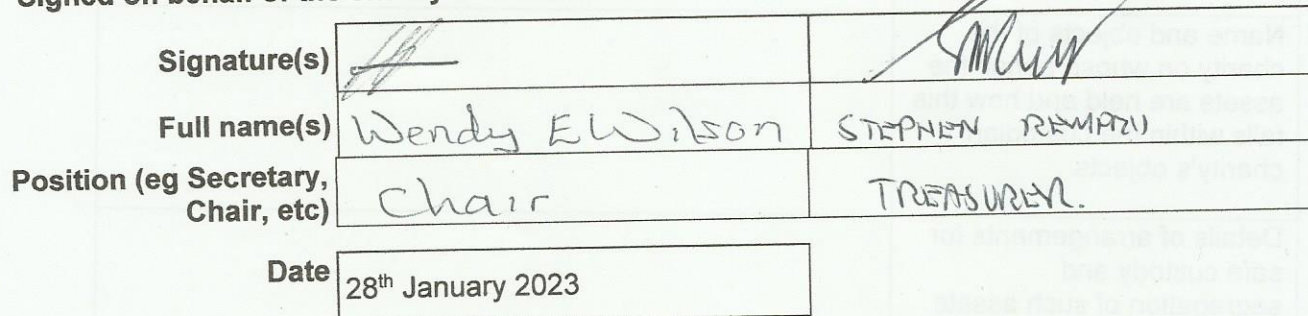 Signature(s)
Full name(s) Wendy E Wilson STEPHEN
Position (eg Secretary,
Chair, etc) Chair TREASURER.
Date 28th January 2023